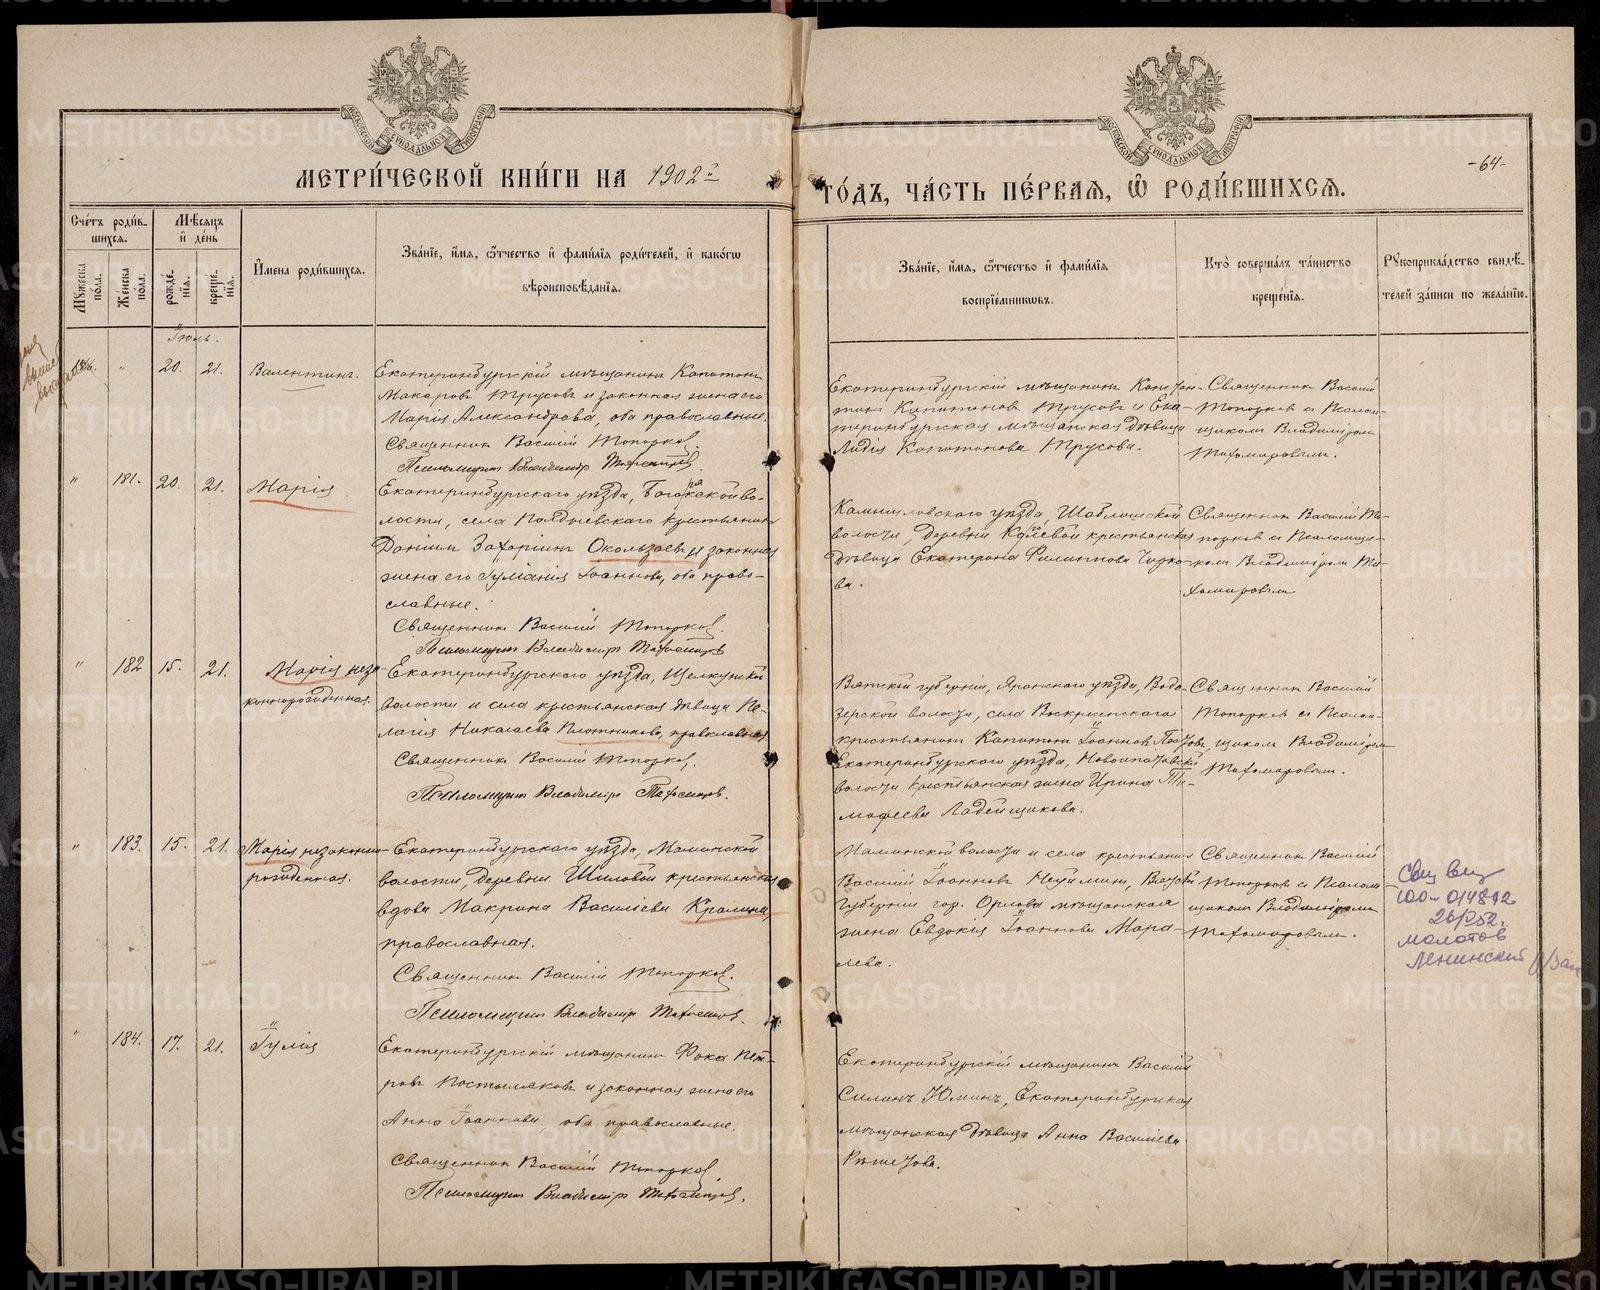 МЕТРИ́ЧЕСКОЙ КНИ́ГИ НА 1902й
ГО́ДЪ, ЧА́СТЬ ПЕ́РВАЯ, Ѽ РОДИ́ВШИХСЯ.
-64-
МОСКОВСКОЙ СѴНОДАЛЬНОЙ ТИПОГРАФІИ
МОСКОВСКОЙ СѴНОДАЛЬНОЙ ТИПОГРАФІИ
Сче́тъ роди́вшихся.
Му́жеска по́ла.
Же́нска по́ла.
Мѣ́сяцъ и҆ де́нь
рожде́нїя.
креще́нїя.
И҆мена роди́вшихся.
Зва́нїе, и҆́мя, ѻ҆́тчество и҆ фами́лїя роди́телей, и҆ како́гѡ вѣроисповѣ́данїя.
Зва́нїе, и҆́мя, ѻ҆́тчество и҆ фами́лїя воспрїе́мниковъ.
Кто̀ соверша́лъ та́инство креще́нїя.
Рꙋкоприкла́дство свидѣ́телей за́писи по жела́нїю.
Іюль.
20. 21. Валентинъ.
Екатеринбургскій мѣщанинъ Капитонъ
Макаровъ Трусовъ и законная жена его
Марія Александрова, оба православные.
Священникъ Василій Топорков.
Псаломщикъ Владиміръ Тихомиров.
Екатеринбургскій мѣщанинъ Констан-
тинъ Капитоновъ Трусовъ и Ека-
теринбургская мѣщанская дѣвица
Лидія Капитонова Трусова.
Священникъ Василій
Топорковъ и Псалом-
щикомъ Владиміромъ
Тихомировымъ.
" 181. 20. 21. Марія
Екатеринбургскаго уѣзда, во-
лости, села крестьянинъ
Даніилъ Захаріинъ Окользаевъ и законная
жена его Іуліанія Іоаннова, оба право-
славные.
Священникъ Василій Топорков.
Псаломщикъ Владиміръ Тихомиров
Камышловскаго уѣзда
волости, деревни крестьянская
дѣвица Екатерина Филиппова
ва.
Священникъ Василій То-
порковъ и Псаломщи-
комъ Владиміромъ Ти-
хомировымъ
" 182 15. 21. Марія неза-
коннорожденная.
Екатеринбургскаго уѣзда, Щелкунской
волости и села крестьянская дѣвица Пе-
лагія Николаева Плотникова, православная
Священникъ Василій Топорков.
Псаломщикъ Владиміръ Тихомиров.
Вятской губерніи, Яранскаго уѣзда, Водо-
зерской волости, села Воскресенскаго
крестьянинъ Капитонъ Іоанновъ
Екатеринбургскаго уѣзда,
волости крестьянская жена Ирина Ти-
мофеева Ладейщикова.
Священникъ Василій
Топорковъ и Псалом-
щикомъ Владиміромъ
Тихомировымъ.
" 183. 15. 21. Марія незаконно-
рожденная.
Екатеринбургскаго уѣзда, Маминской
волости, деревни Шиловой крестьянская
вдова Макрина Василіева Кралина,
православная.
Священникъ Василій Топорков.
Псаломщикъ Владиміръ Тихомиров.
Маминской волости и села крестьянинъ
Василій Іоанновъ Неуйминъ, Вятской
губерніи гор. Орлова мѣщанская
жена Евдокія Іоаннова Мара-
лева.
Священникъ Василій
Топорковъ и Псалом-
щикомъ Владиміромъ
Тихомировымъ.
26/V 52.
Молотов
Ленинский р/заг
" 184. 17. 21. Іулія
Екатеринбургскій мѣщанинъ Фока Пет-
ровъ Постыляковъ и законная жена его
Анна Іоаннова, оба православные.
Священникъ Василій Топорков
Псаломщикъ Владиміръ Тихомиров.
Екатеринбургскій мѣщанинъ Василій
Силинъ Юминъ, Екатеринбургская
мѣщанская дѣвица Анна Василіева
METRIKI.GASO-URAL.RU